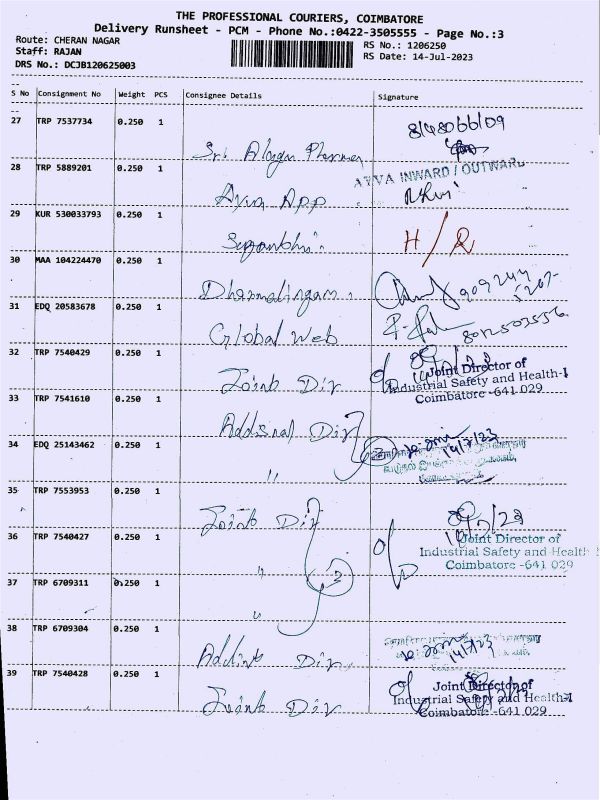 THE PROFESSIONAL COURIERS, COIMBATORE
Delivery Runsheet - PCM - Phone No.:0422-3505555 - Page No.:3
Route: CHERAN NAGAR
RS No.: 1206250
Staff: RAJAN
RS Date: 14-Jul-2023
DRS No.: DCJB120625003
S No Consignment No Weight PCS Consignee Details Signature
27 TRP 7537734 0.250 1
Sri
28 TRP 5889201 0.250 1 INWARD / OUTWARD
App
29 KUR 530033793 0.250 1
H/R
30 MAA 104224470 0.250 1
Dharmalingam
31 EDQ 20583678 0.250 1
Global Web
32 TRP 7540429 0.250 1
Joint Dir
Joint Director of
Industrial Safety and Health-I
Coimbatore -641 029
33 TRP 7541610 0.250 1
Dir
34 EDQ 25143462 0.250 1 14/7/23
"
35 TRP 7553953 0.250 1
Joint Dir
36 TRP 7540427 0.250 1 Joint Director of
Industrial Safety and Health
Coimbatore -641 029
"
37 TRP 6709311 0.250 1
3
"
38 TRP 6709304 0.250 1 14/7/23
Dir
39 TRP 7540428 0.250 1
Joint Dir
Joint Director of
Industrial Safety and Health-I
Coimbatore -641 029